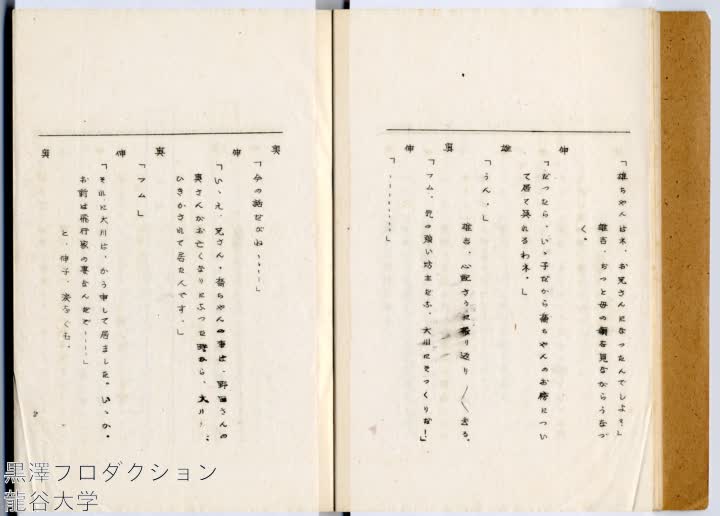 「雄ちやんはネ、お兄さんになつたんでしよう？」
雄吉、ぢつと母の顔を見ながらうなづ
く。
伸
「だつたら、いゝ子だから喬ちやんのお傍につい
て居て呉れるわネ。」
雄
「うん。」
雄吉、心配さうに振り返り〱去る。
眞
「フム、気の強い坊主だふ、大川にそつくりだ！」
伸
「…………」
眞
「今の話だがね……」
伸
「いゝえ、兄さん、喬ちやんの事は、野田さんの
奥さんがお亡くなりにふつた時から、大川に
ひきかされて居たんです。」
眞
「フム」
伸
「それに大川は、かう申して居ました。いゝか。
お前は飛行家の妻なんだぞ……」
と、伸子、涙ぐむも、
眞
2
黒澤プロダクション
龍谷大学